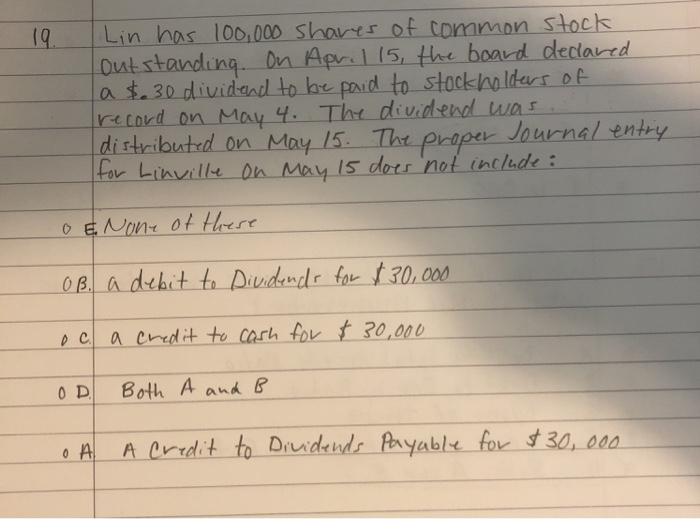 19. Lin has 100,000 shares of common stock
outstanding. On April 15, the board declared
a $.30 dividend to be paid to stockholders of
record on May 4. The dividend was
distributed on May 15. The proper Journal entry
for Linville on May 15 does not include:
O E. None of these
O B. a debit to Dividends for $30,000
O C. a credit to cash for $ 30,000
O D. Both A and B
O A. A Credit to Dividends Payable for $30,000